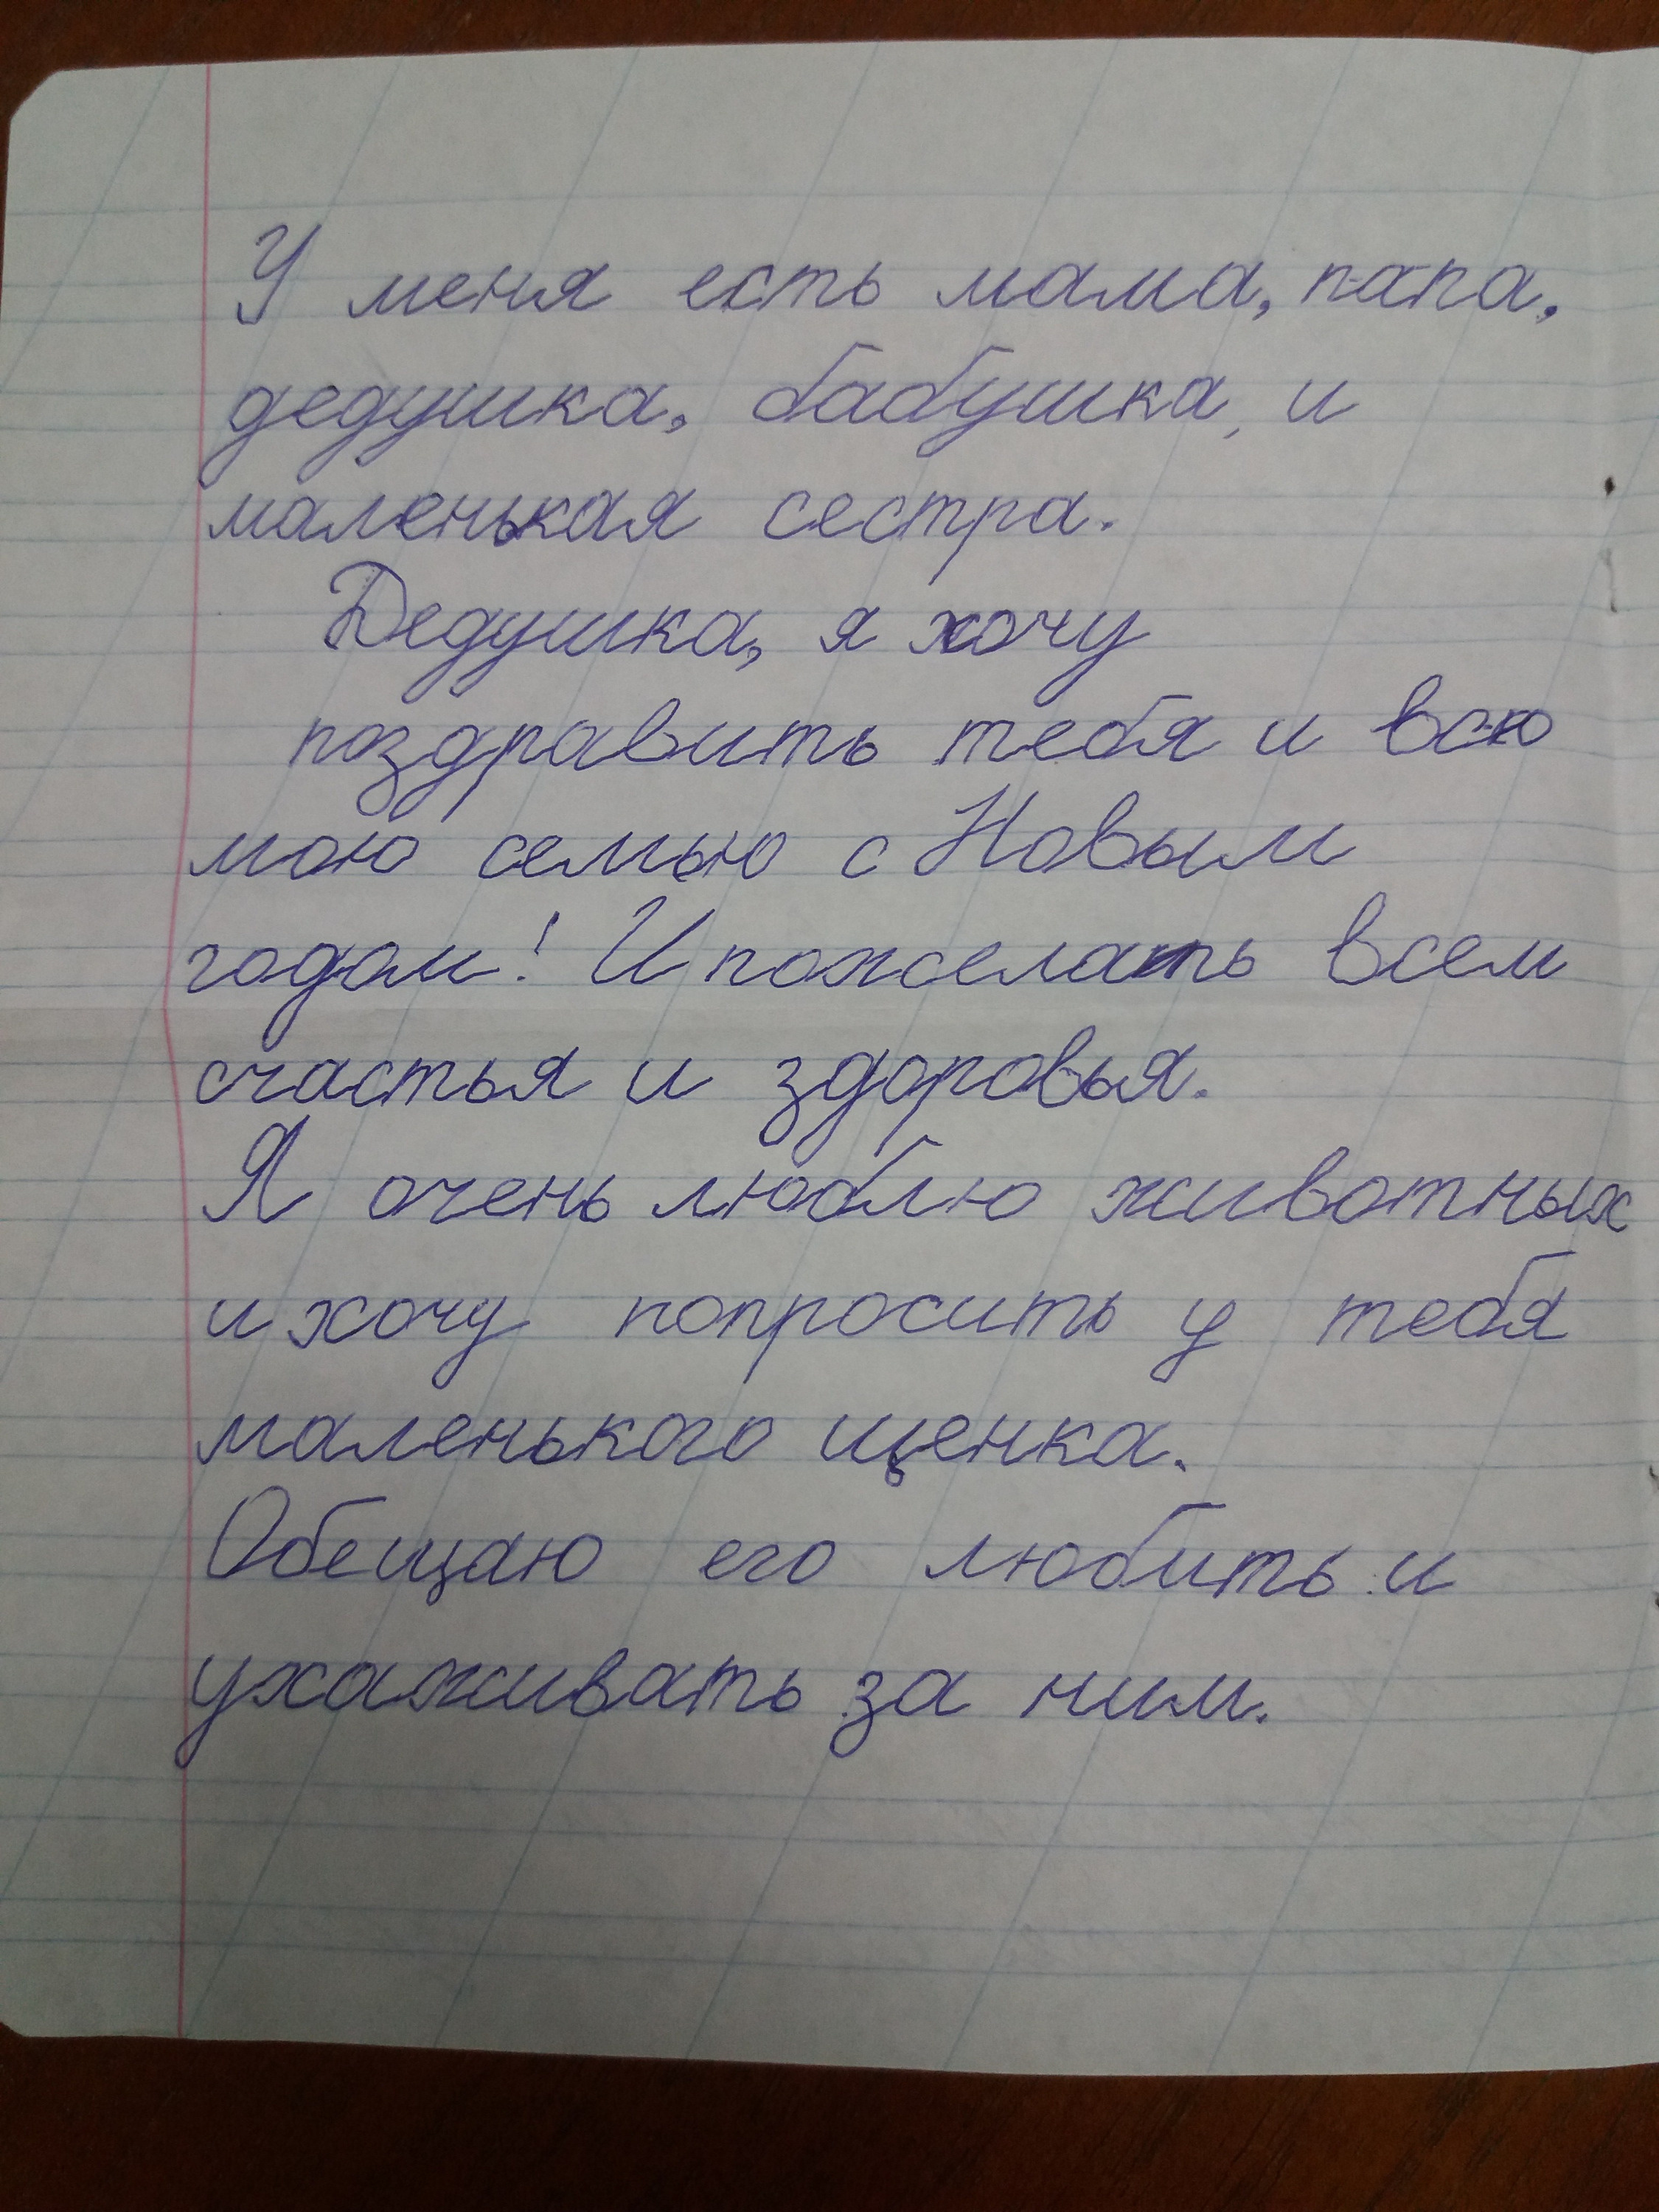 У меня есть мама, папа,
дедушка, бабушка, и
маленькая сестра.
Дедушка, я хочу
поздравить тебя и всю
мою семью с Новым
годом! И пожелать всем
счастья и здоровья.
Я очень люблю животных
и хочу попросить у тебя
маленького щенка.
Обещаю его любить и
ухаживать за ним.